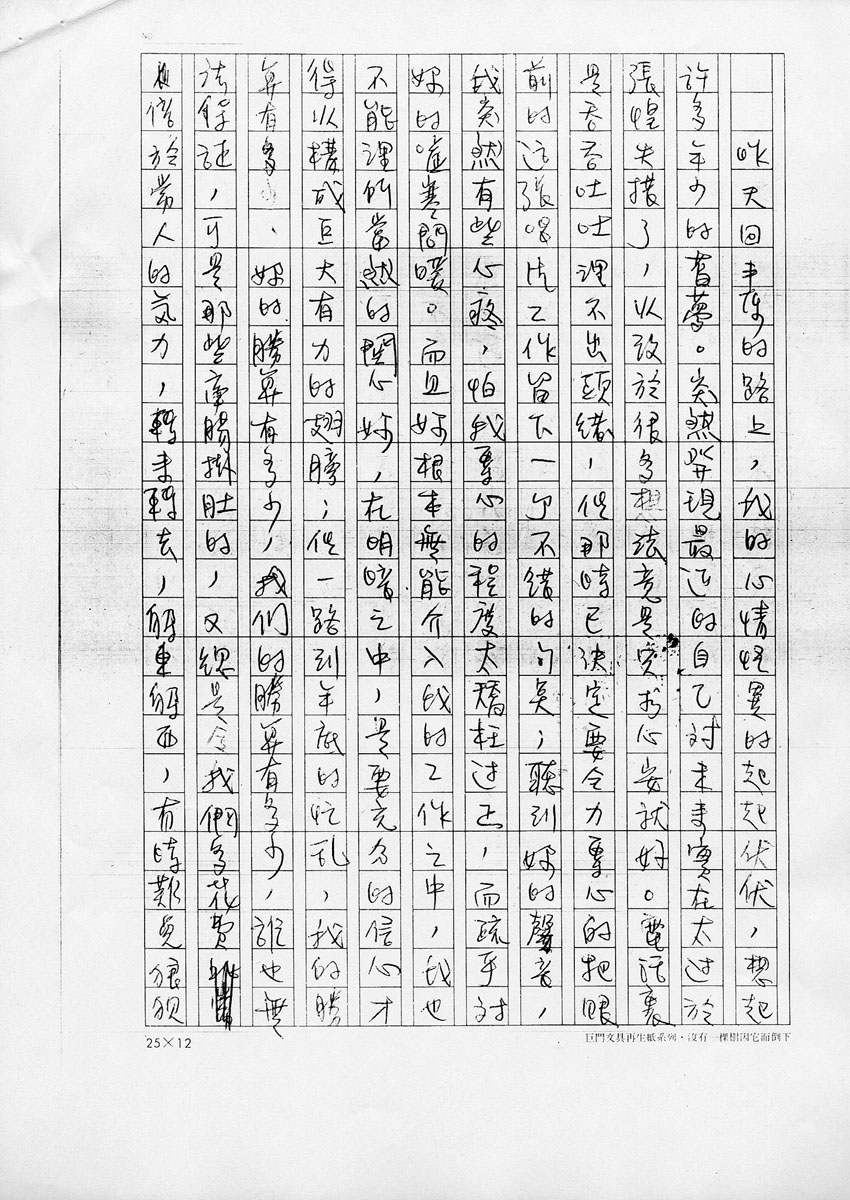 NO
昨天回車隊的路上，我的心情怪異的起起伏伏，想起
許多年少的舊夢。突然發現最近的自己對未來實在太過於
張惶失措了，以致於很多想法竟是實求心安就好。電話裏
是吞吞吐吐理不出頭緒，但那時已決定要全力專心的把眼
前的這張唱片工作留下一個不錯的句點；聽到妳的聲音，
我突然有些心疼，怕我專心的程度太矯枉過正，而疏乎對
妳的噓寒問暖。而且妳根本無能介入我的工作之中，我也
不能理所當然的關心妳，在明暗之中，是要充分的信心才
得以構成巨大有力的翅膀；但一路到年底的忙亂，我的勝
算有多少、妳的勝算有多少，我們的勝算有多少，誰也無
法保証，可是那些牽腸掛肚的，又總是令我們多花費
倍於常人的氣力，轉來轉去，解東解西，有時難免狼狽
25×12
巨門文具再生紙系列・沒有一棵樹因它而倒下